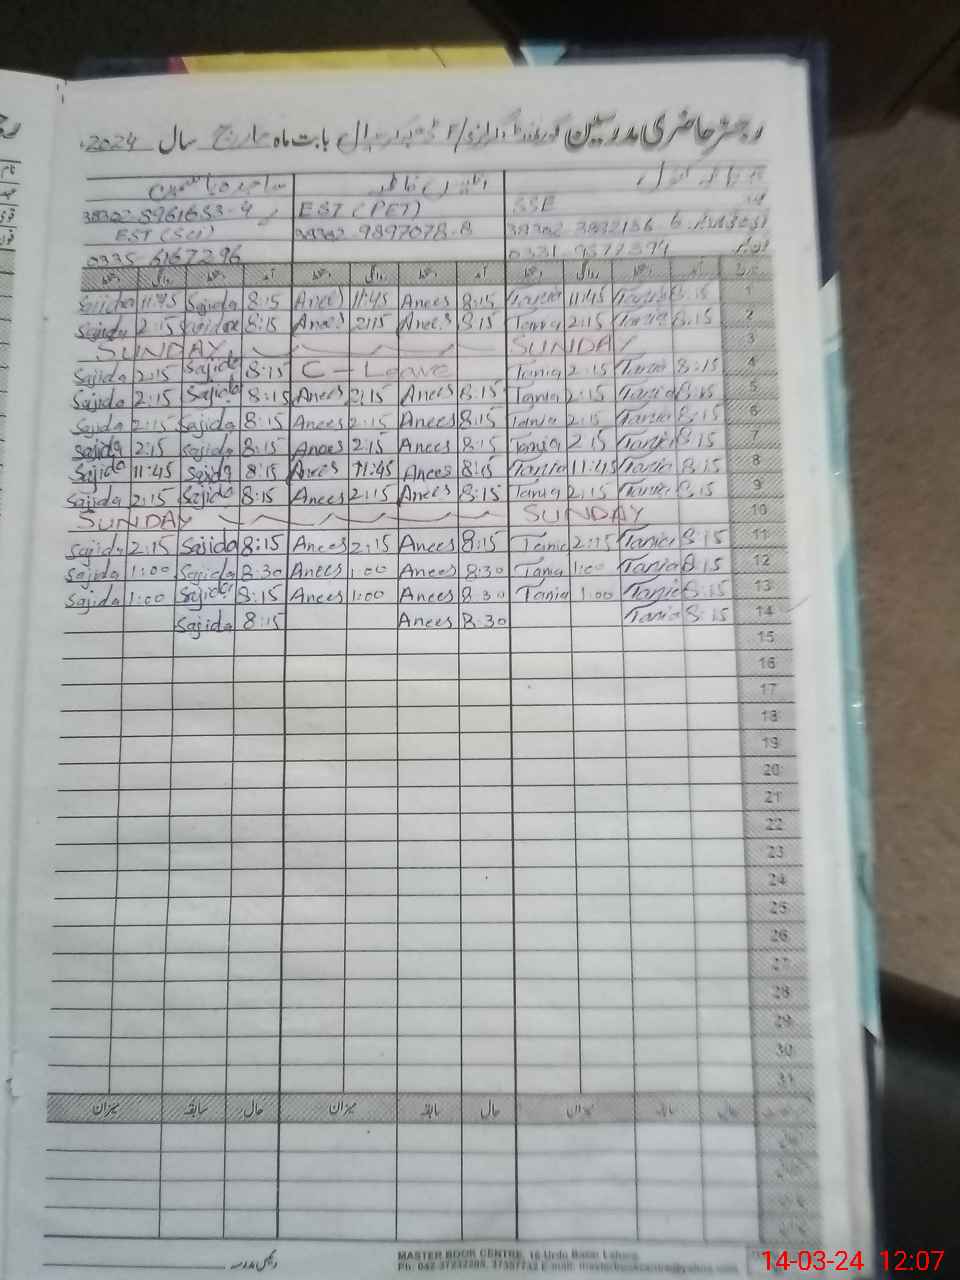 رجسٹر حاضری مدرسین بابت ماہ مارچ سال 2024ء
ساجدہ یاسمین
38302-5961653-4 EST (PET) SSE
EST (Sci) 38302-9897078-8 38302-3832156-6
0335-6167296 0331-9577394
دستخط روانگی دستخط آمد دستخط روانگی دستخط آمد دستخط روانگی دستخط آمد تاریخ
Sajida 11:45 Sajida 8:15 Anees 11:45 Anees 8:15 Tania 11:45 Tania 8:15 1
Sajida 2:15 Sajida 8:15 Anees 2:15 Anees 8:15 Tania 2:15 Tania 8:15 2
SUNDAY SUNDAY 3
Sajida 2:15 Sajida 8:15 C - Leave Tania 2:15 Tania 8:15 4
Sajida 2:15 Sajida 8:15 Anees 2:15 Anees 8:15 Tania 2:15 Tania 8:15 5
Sajida 2:15 Sajida 8:15 Anees 2:15 Anees 8:15 Tania 2:15 Tania 8:15 6
Sajida 2:15 Sajida 8:15 Anees 2:15 Anees 8:15 Tania 2:15 Tania 8:15 7
Sajida 11:45 Sajida 8:15 Anees 11:45 Anees 8:15 Tania 11:45 Tania 8:15 8
Sajida 2:15 Sajida 8:15 Anees 2:15 Anees 8:15 Tania 2:15 Tania 8:15 9
SUNDAY SUNDAY 10
Sajida 2:15 Sajida 8:15 Anees 2:15 Anees 8:15 Tania 2:15 Tania 8:15 11
Sajida 1:00 Sajida 8:30 Anees 1:00 Anees 8:30 Tania 1:00 Tania 8:15 12
Sajida 1:00 Sajida 8:15 Anees 1:00 Anees 8:30 Tania 1:00 Tania 8:15 13
Sajida 8:15 Anees 8:30 Tania 8:15 14
15
16
17
18
19
20
21
22
23
24
25
26
27
28
29
30
31
میزان سابقہ حال میزان سابقہ حال میزان سابقہ حال
رئیس مدرسہ
MASTER BOOK CENTRE, 16 Urdu Bazar Lahore
Ph: 042-37232209, 37357732 E-mail:
14-03-24 12:07